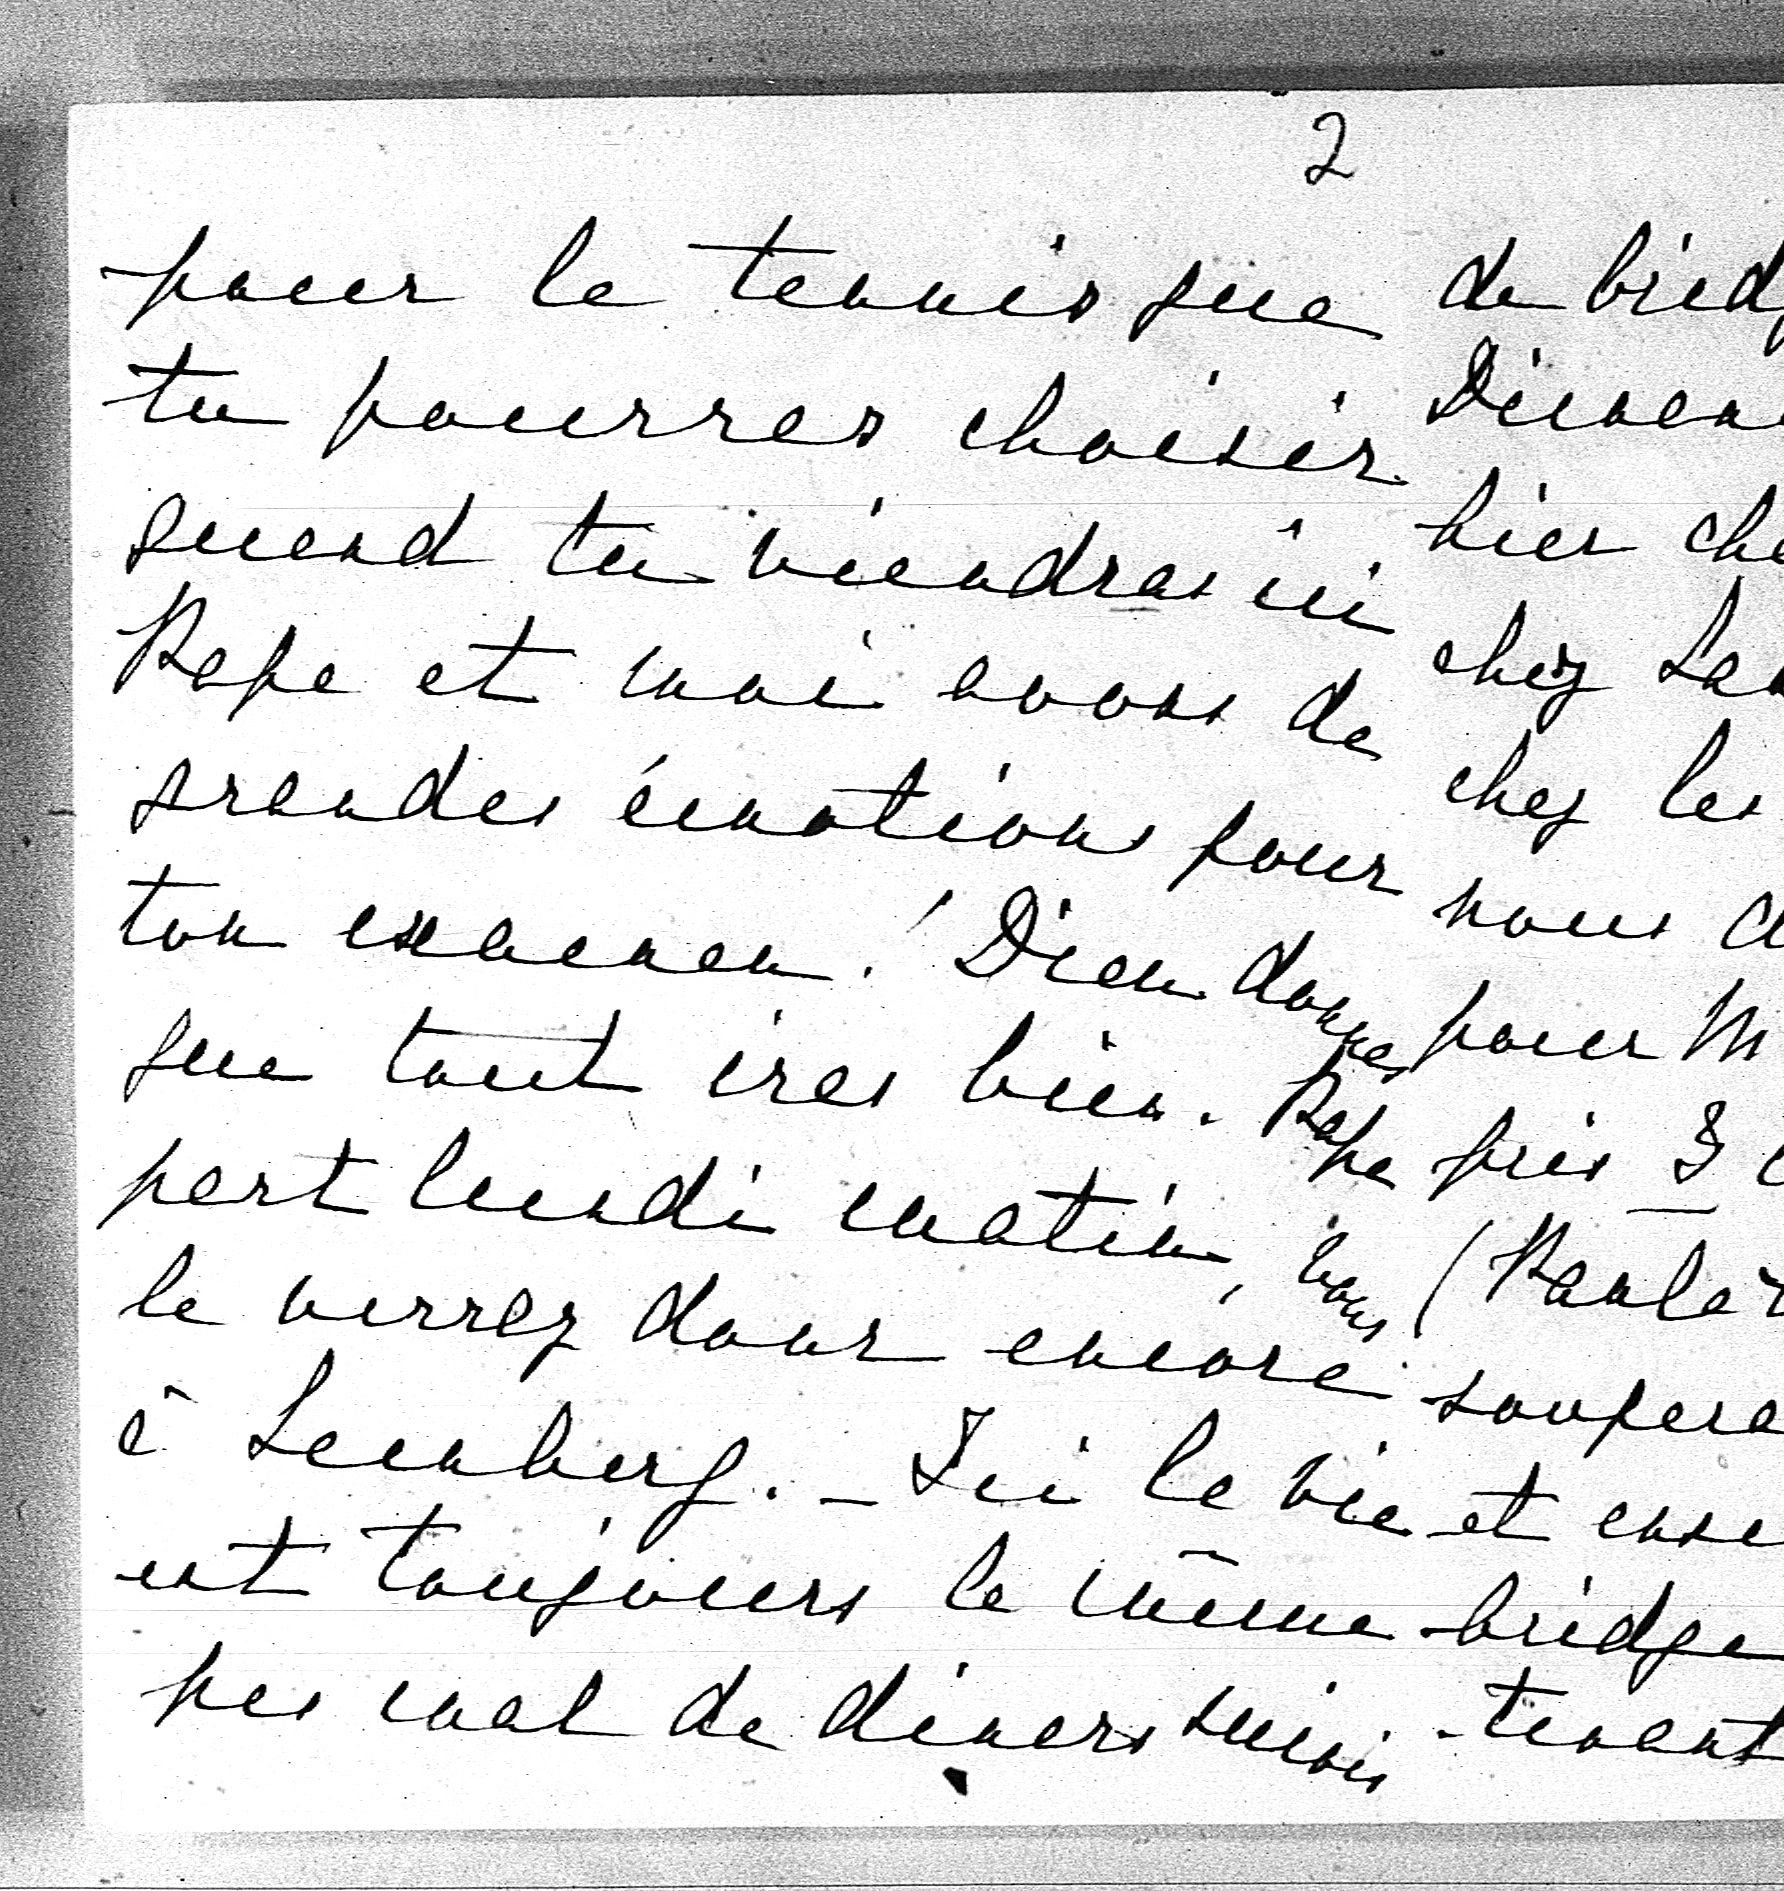 2
pour le tennis que
tu pourras choisir
quand tu viendras ici
Papa et moi avons de
grandes émotions pour
ton examen! Dieu donne
que tout ira bien. Papa
part lundi matin, vous
le verrez donc encore
à Lemberg. - Ici la vie
est toujours la même
pas mal de diners suivis
de bridg
Diman
hier che
chez
chez les
nous
pour M
pris 3
(
soupera
et ense
bridge
tenant